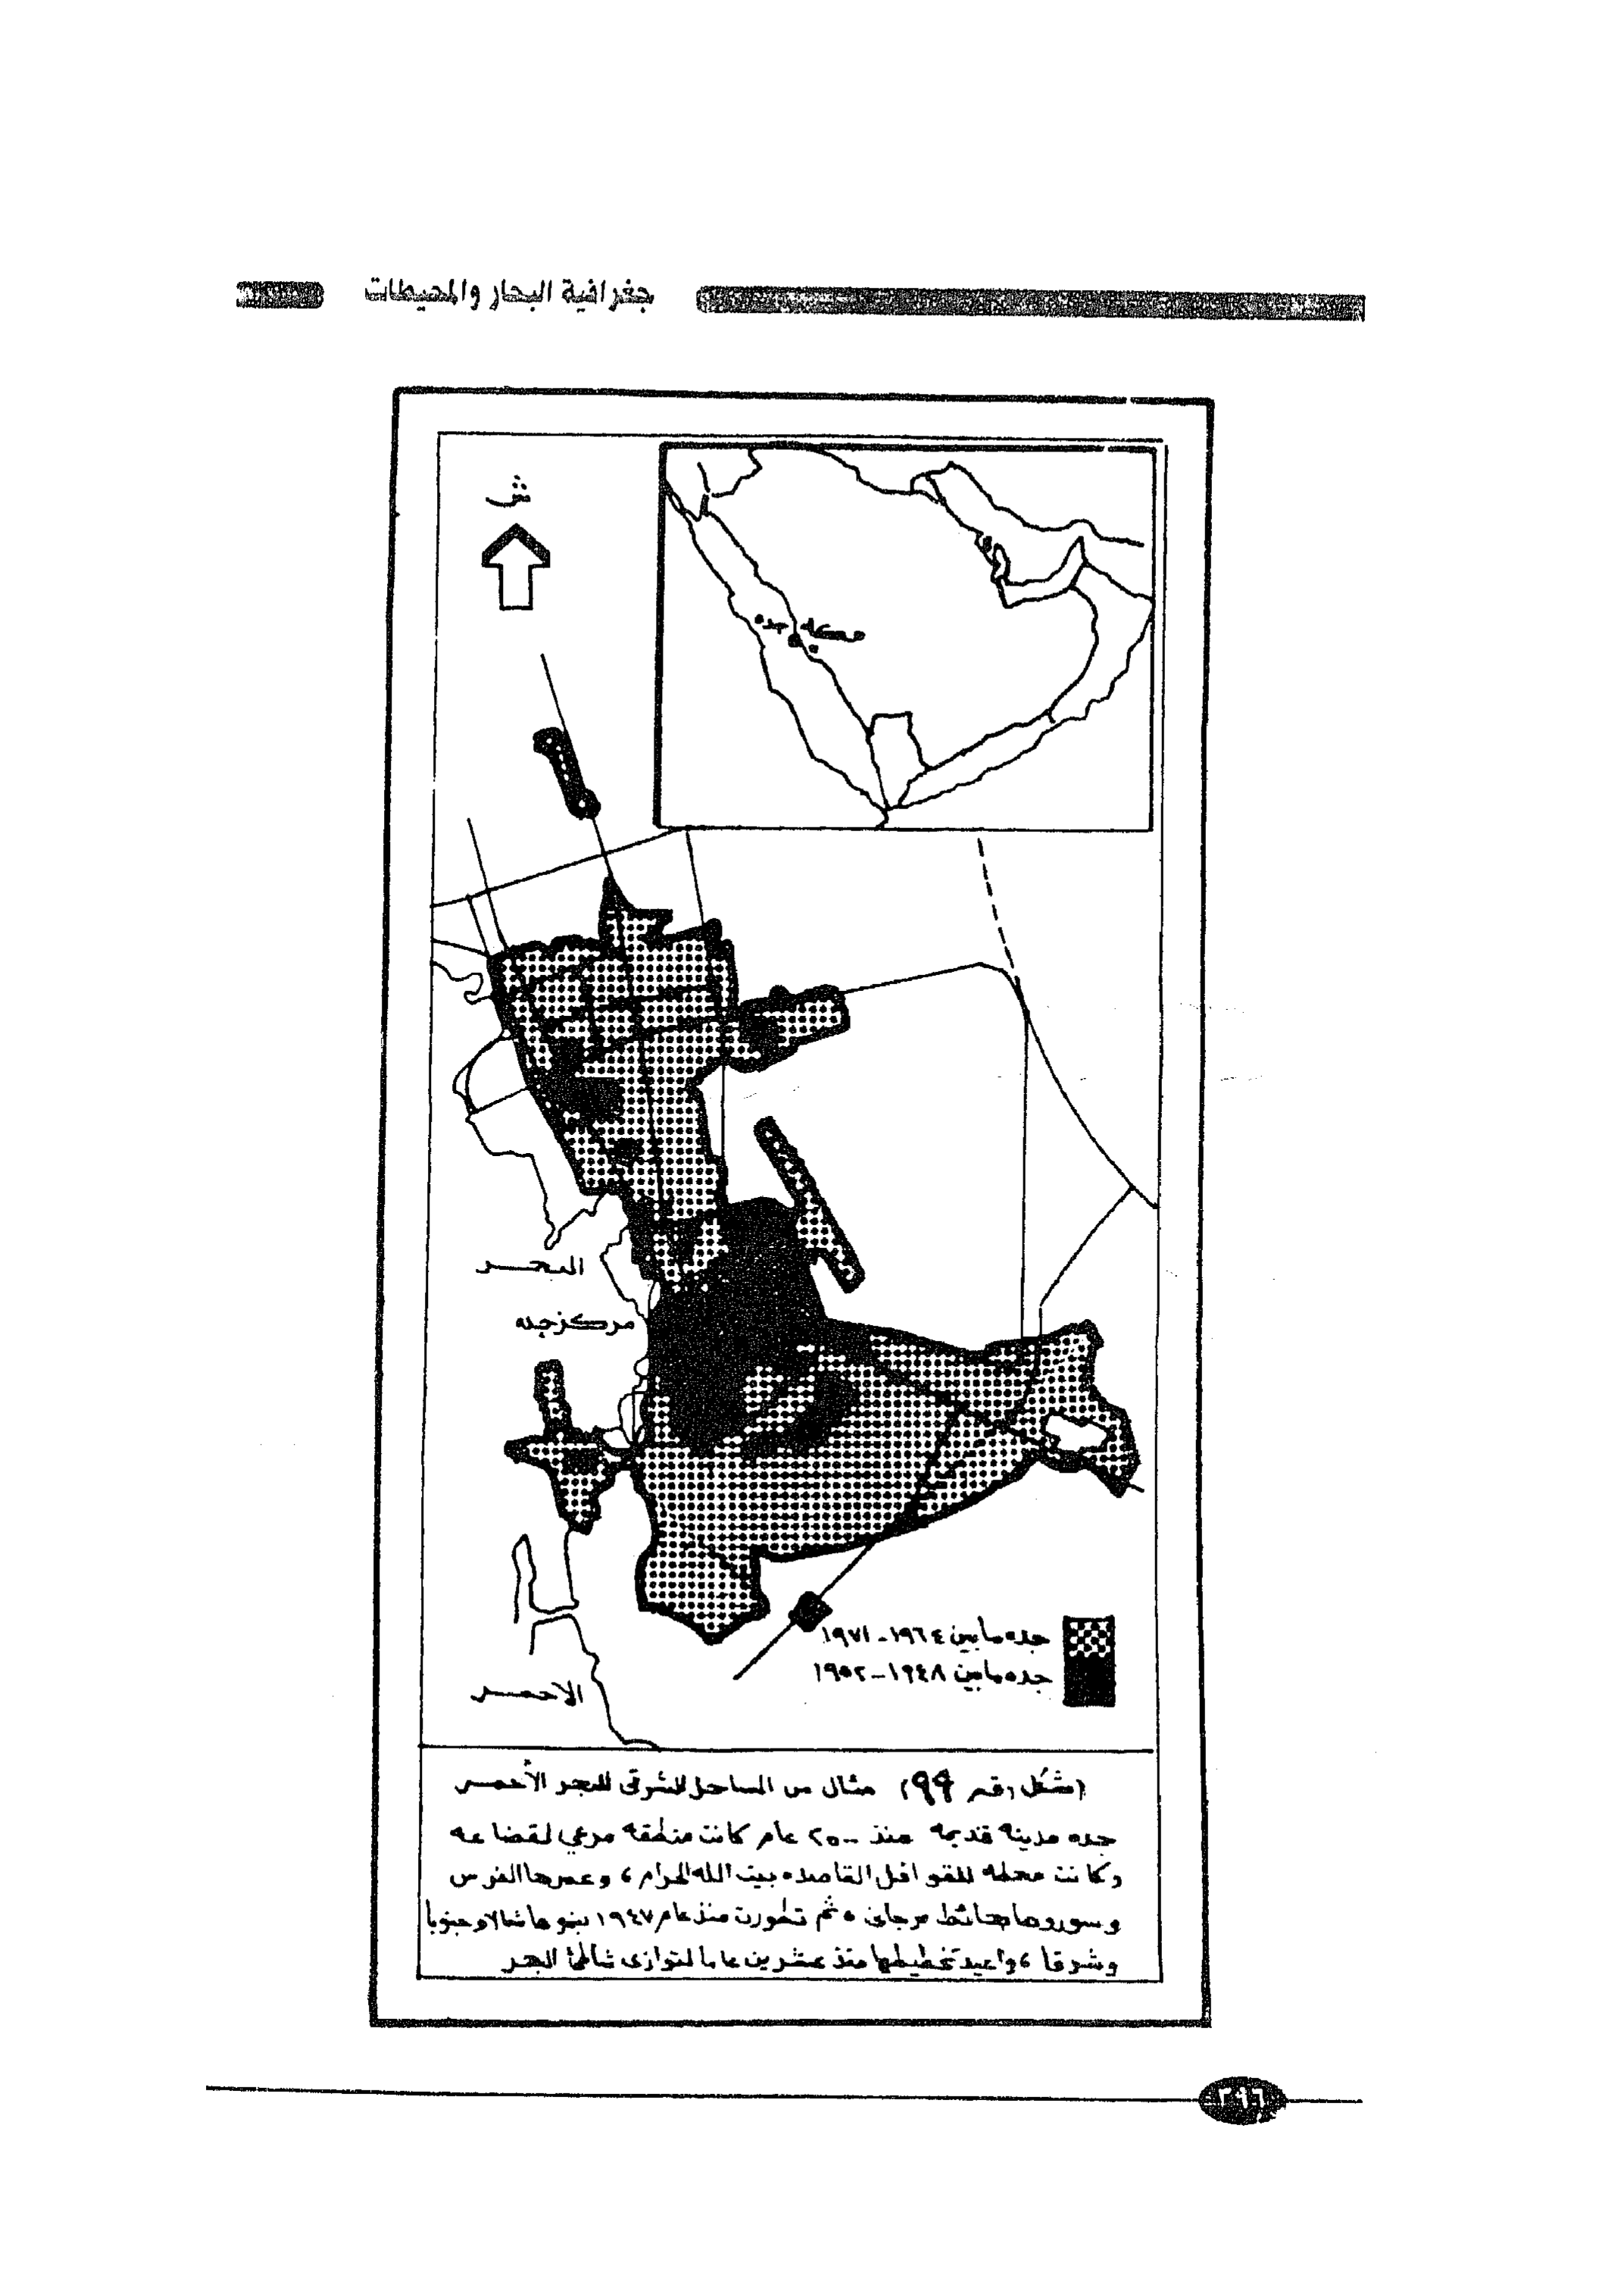 جغرافية البحار والمحيطات
ش
جده
مكه
البحر
مركز جده
جده مابين ١٩٦٤-١٩٧١
جده مابين ١٩٤٨-١٩٥٢
الاحمر
(شكل رقم ٩٩) مثال من الساحل الشرقى للبحر الأحمر
جده مدينه قديمه منذ ٢٥٠٠ عام كانت منطقه مرعي لقضاعه
وكانت محطه للقوافل القاصده بيت الله الحرام، وعمرها الفرس
وسوروها بحائط مرجانى، ثم تطورت منذ عام ١٩٤٧ بنموها شمالا وجنوبا
وشرقا، واعيد تخطيطها منذ عشرين عاما لتوازى شاطئ البحر
٢٩٦